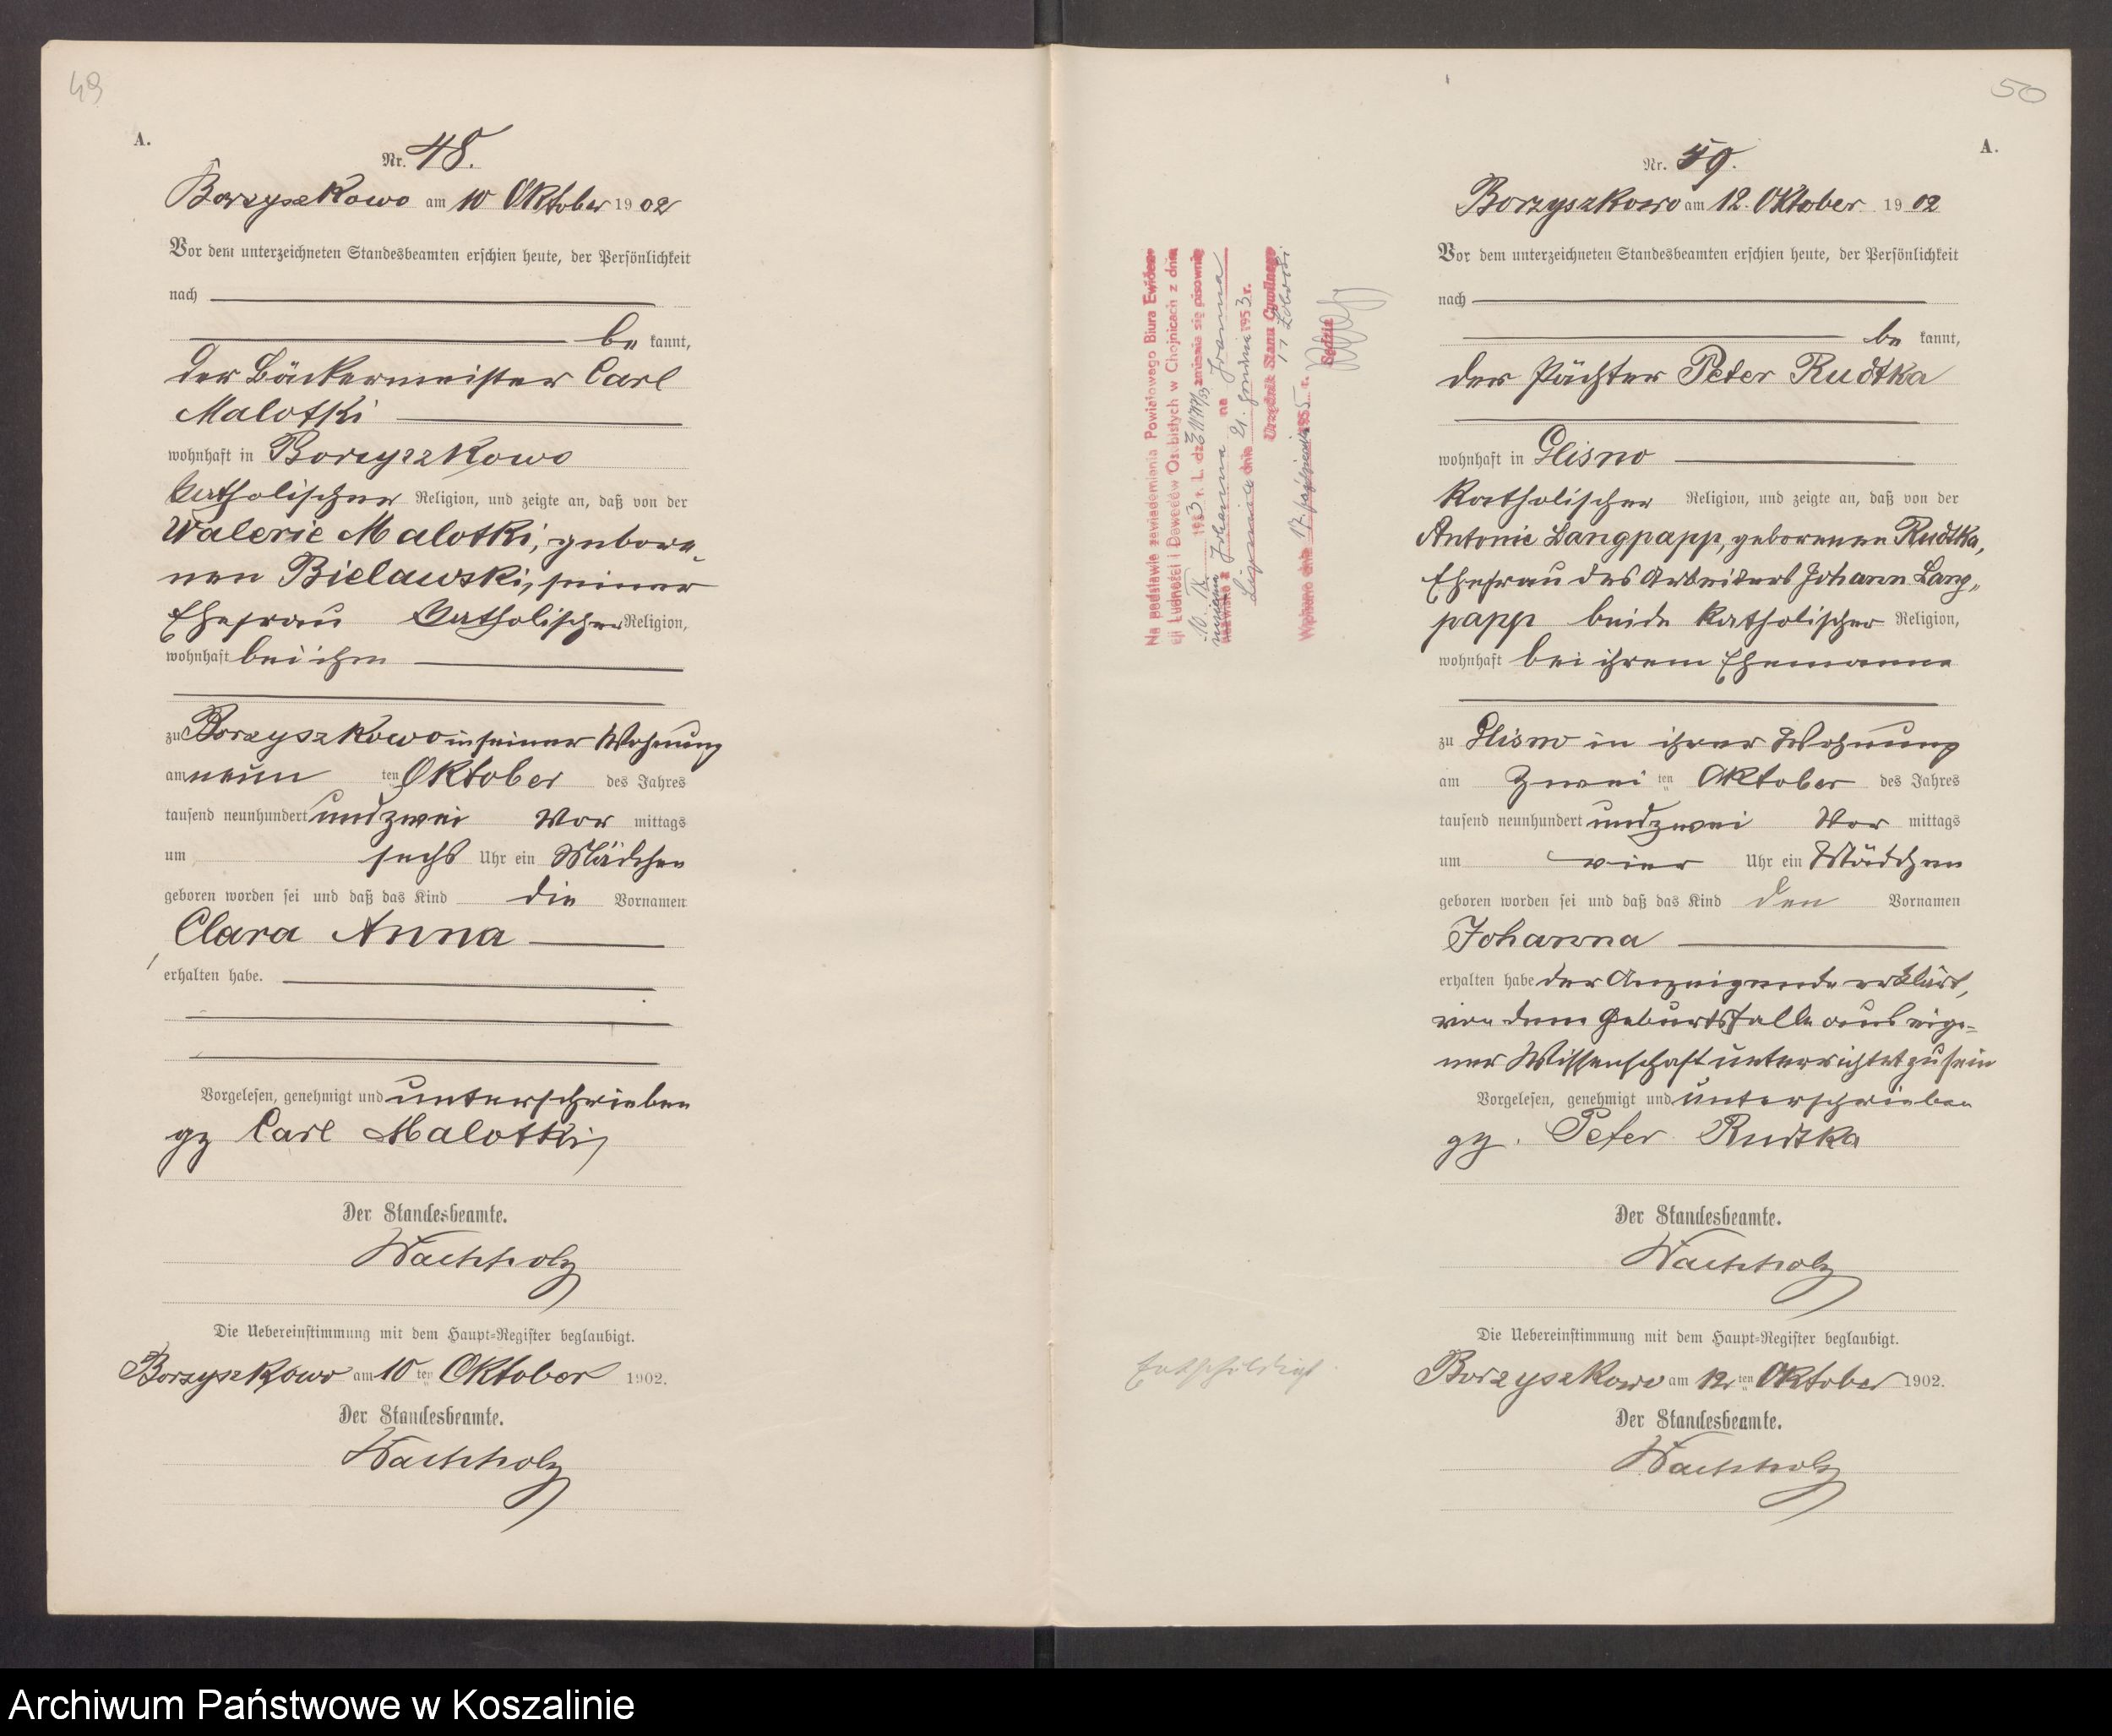 49
A.
Nr. 48.
Borzyszkowo am 10 Oktober 1902
Vor dem unterzeichneten Standesbeamten erschien heute, der Persönlichkeit
nach
be kannt,
der Bäckermeister Carl
Malotki
wohnhaft in Borzyszkowo
katholischer Religion, und zeigte an, daß von der
Walerie Malotki, gebore-
nen Bielawski, seiner
Ehefrau katholischer Religion,
wohnhaft bei ihm
zu Borzyszkowo in seiner Wohnung
am neun ten Oktober des Jahres
tausend neunhundert undzwei Vor mittags
um sechs Uhr ein Mädchen
geboren worden sei und daß das Kind die Vornamen
Clara Anna
erhalten habe.
Vorgelesen, genehmigt und unterschrieben
gz Carl Malotki
Der Standesbeamte.
Wachholz
Die Uebereinstimmung mit dem Haupt-Register beglaubigt.
Borzyszkowo am 10 ten Oktober 1902.
Der Standesbeamte.
Wachholz
50
A.
Nr. 49.
Borzyszkowo am 12. Oktober 1902
Vor dem unterzeichneten Standesbeamten erschien heute, der Persönlichkeit
nach
be kannt,
der Pächter Peter Rudtka
wohnhaft in Glisno
katholischer Religion, und zeigte an, daß von der
Antonie Langpapp, geborenen Rudtka,
Ehefrau des Arbeiters Johann Lang-
papp beide katholischer Religion,
wohnhaft bei ihrem Ehemanne
zu Glisno in ihrer Wohnung
am zwei ten Oktober des Jahres
tausend neunhundert undzwei Vor mittags
um vier Uhr ein Mädchen
geboren worden sei und daß das Kind den Vornamen
Johanna
erhalten habe der Anzeigende erklärt,
von dem Geburtsfalle aus eige-
ner Wissenschaft unterrichtet zu sein
Vorgelesen, genehmigt und unterschrieben
gz. Peter Rudtka
Der Standesbeamte.
Wachholz
Die Uebereinstimmung mit dem Haupt-Register beglaubigt.
Borzyszkowo am 12 ten Oktober 1902.
Der Standesbeamte.
Wachholz
Na podstawie zawiadomienia Powiatowego Biura Ewiden-
cji Ludności i Dowodów Osobistych w Chojnicach z dnia
10. IX. 1953 r. L. dz. zmienia się pisownię
nazwiska z Johanna na Joanna
dnia 21. grudnia 1953 r.
Urzędnik Stanu Cywilnego
Wpisano dnia 17 października 1955 r.
Archiwum Państwowe w Koszalinie